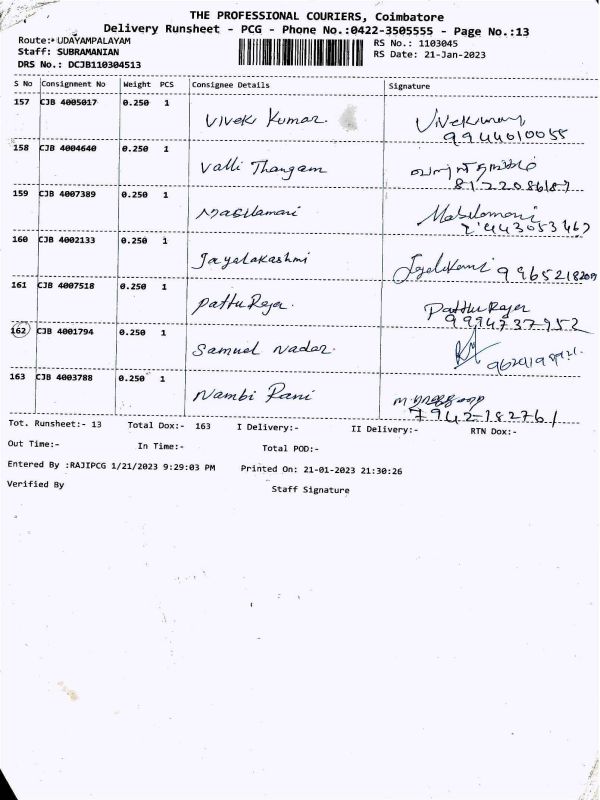 THE PROFESSIONAL COURIERS, Coimbatore
Delivery Runsheet - PCG - Phone No.:0422-3505555 - Page No.:13
Route:- UDAYAMPALAYAM RS No.: 1103045
Staff: SUBRAMANIAN RS Date: 21-Jan-2023
DRS No.: DCJB110304513
S No Consignment No Weight PCS Consignee Details Signature
157 CJB 4005017 0.250 1 Vivek Kumar. Vivekumar
9944010055
158 CJB 4004640 0.250 1 Valli Thangam
8122086187
159 CJB 4007389 0.250 1 Masilamani Masilamani
160 CJB 4002133 0.250 1 Jayalakashmi 9965218209
161 CJB 4007518 0.250 1 Pattu Raja. Pattu Raja
9994737952
162 CJB 4001794 0.250 1 Samuel Nadar.
163 CJB 4003788 0.250 1 Nambi Rani
7942-182761
Tot. Runsheet:- 13 Total Dox:- 163 I Delivery:- II Delivery:- RTN Dox:-
Out Time:- In Time:- Total POD:-
Entered By :RAJIPCG 1/21/2023 9:29:03 PM Printed On: 21-01-2023 21:30:26
Verified By Staff Signature